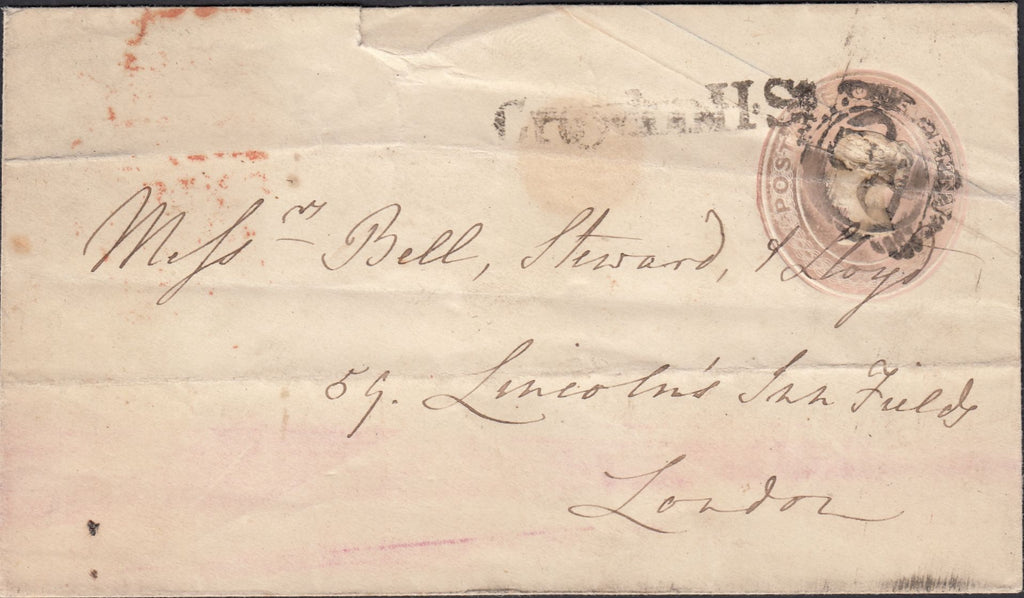 Croydon H:S
POST
Messrs Bell, Steward, & Lloyd
59. Lincoln's Inn Fields
London